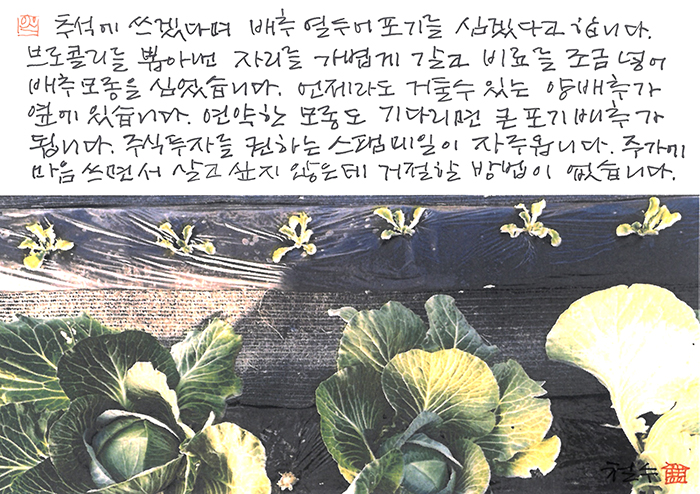 추석에 쓰겠다며 배추 열두어 포기를 심겠다고 합니다.
브로콜리를 뽑아낸 자리를 가볍게 갈고 비료를 조금 넣어
배추모종을 심었습니다. 언제라도 거둘수 있는 양배추가
옆에 있습니다. 연약한 모종도 기다리면 큰 포기배추가
됩니다. 주식투자를 권하는 스팸메일이 자주옵니다. 주가에
마음 쓰면서 살고 싶지 않은데 거절할 방법이 없습니다.
철수